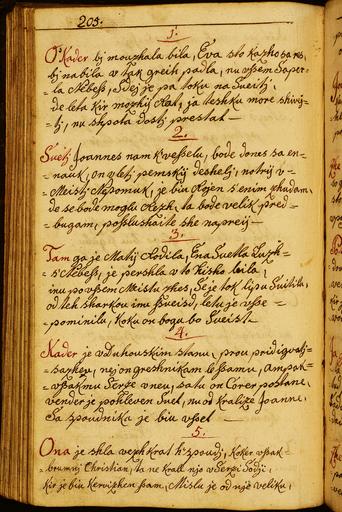 203.
1.
O Kader bi mouzhala bila, Eva sto kazho sa
bi nabila v tak greih padla, nu vsem Saper
la Nebess, Sdej je pa toku na Sveiti,
de leta kir mozhij Rat, ja teshku more shivij
ti, nu shpota dosti prestat
2.
Sveti Joannes nam k'vesselu, bode dones sa en
nauk, on v leti pemskij desheli, notrij v
Meisti Nepomuk, je biu Rojen s'enim zhudam,
de se bode moglu Rezh, ta bode velik pred
bugam, posslushaite she naprei
3.
Tam ga je Matij Rodila, Ena Svetla Luzh
s'Nebess, je pershla v to Hisho bila,
inu po vssem Meistu zhes, Se je tok lipu Svitila,
od teh sharkou inu Sveisd, letu je vsse
pominilu, koku on bogu bo Sveist
4.
Kader je v Duhouskim stanu, prou pridigvati
sazheu, nei on greshnikam lessamu, Ampak
vssakmu Serze vneu, satu on Corer postane,
vender je pohleven Suet, nu od Kralize Joanne,
Sa spoudnika je biu vsset
5.
Ona je shla vezhkrat k'spoudi, koker vssak
brumni Christian, ta ne krall njo v Serzi Sodij,
kir je biu kervizhen sam, Mislu je od nje veliku,